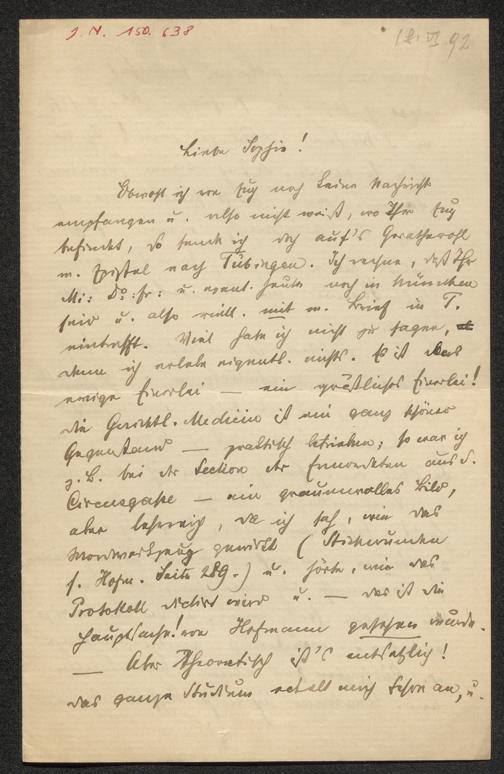 J. N. 150.638
12. VI 92
Liebe Sophie!
Obwohl ich von Euch noch keine Nachricht
empfangen u. also nicht weiß, wo Ihr Euch
befindet, so sende ich doch auf's Gerathewohl
m. Epistel nach Tübingen. Ich rechne, daß Ihr
Mi: Do: fr: u. event. heute noch in München
seid u. also vielL. mit m. Brief in T.
eintrefft. Viel habe ich nicht zu sagen,
denn ich erlebe eigentl. nichts. Es ist das
ewige Einerlei — ein gräßliches Einerlei!
Die Gerichtl. Medicin ist ein ganz schöner
Gegenstand — praktisch betrieben; so war ich
z. B. bei der Section der Ermordeten aus d.
Circusgasse — ein grauenvolles Bild,
aber lehrreich, da ich sah, wie das
Mordwerkzeug gewirkt (Stichwunden
s. Hofm. Seite 289.) u. hörte, wie das
Protokoll dictirt wird u. — das ist die
Hauptsache! von Hofmann gesehen wurde.
— Aber Theoretisch ist's entsetzlich!
Das ganze Studium ekelt mich schon an, u.